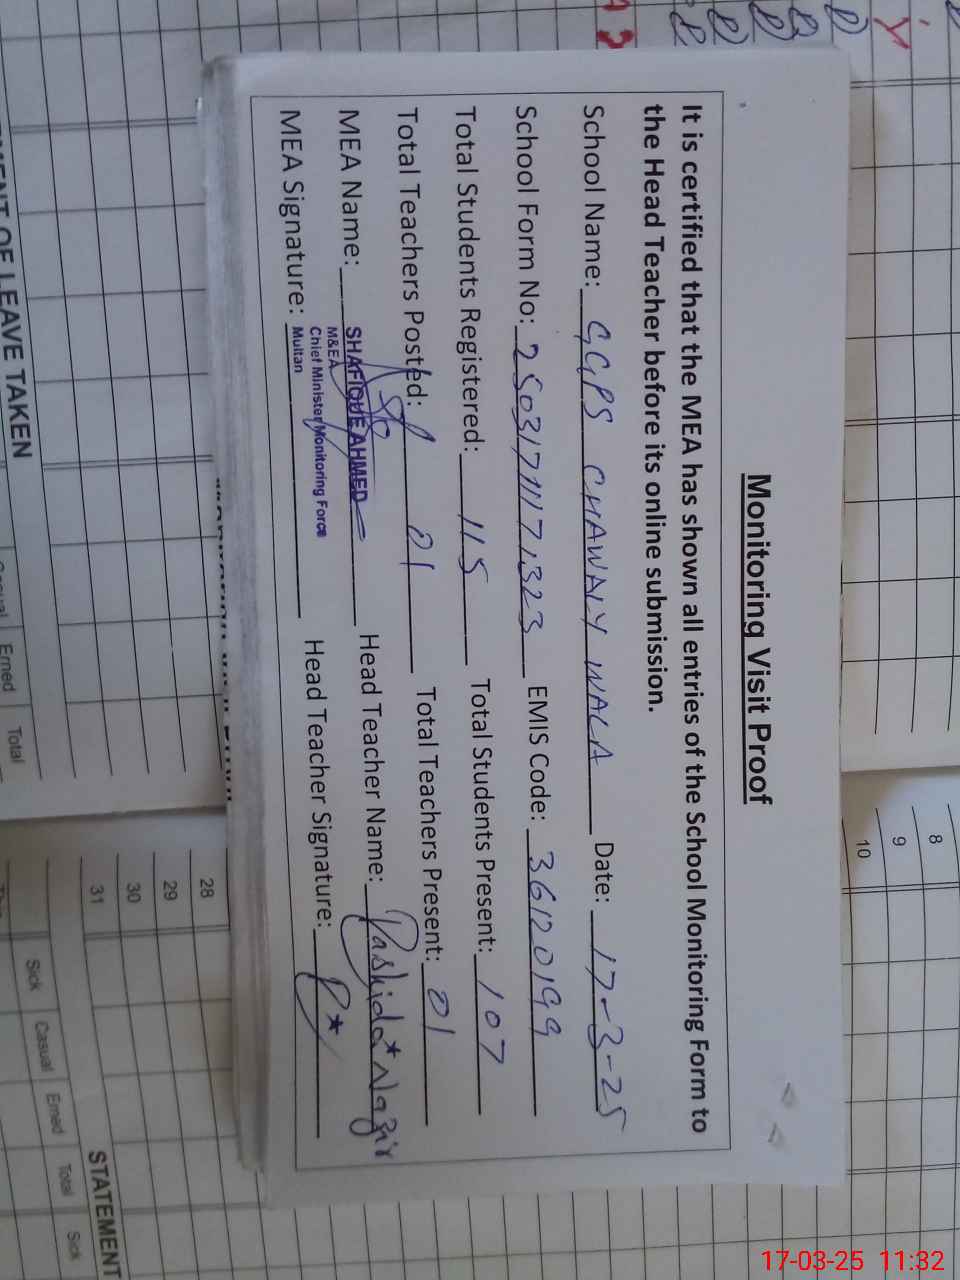 Monitoring Visit Proof
It is certified that the MEA has shown all entries of the School Monitoring Form to
the Head Teacher before its online submission.
School Name: GGPS CHAWALY WALA Date: 17-3-25
School Form No: EMIS Code: 36120199
Total Students Registered: 115 Total Students Present: 107
Total Teachers Posted: 01 Total Teachers Present: 01
MEA Name: SHAFIQUE AHMED Head Teacher Name: Rashida Nazir
M&EA
Chief Minister Monitoring Force
Multan
MEA Signature: Head Teacher Signature:
OF LEAVE TAKEN
Erned Total
8
9
10
28
29
30
31
Sick Casual Erned Total Sick
STATEMENT
17-03-25 11:32